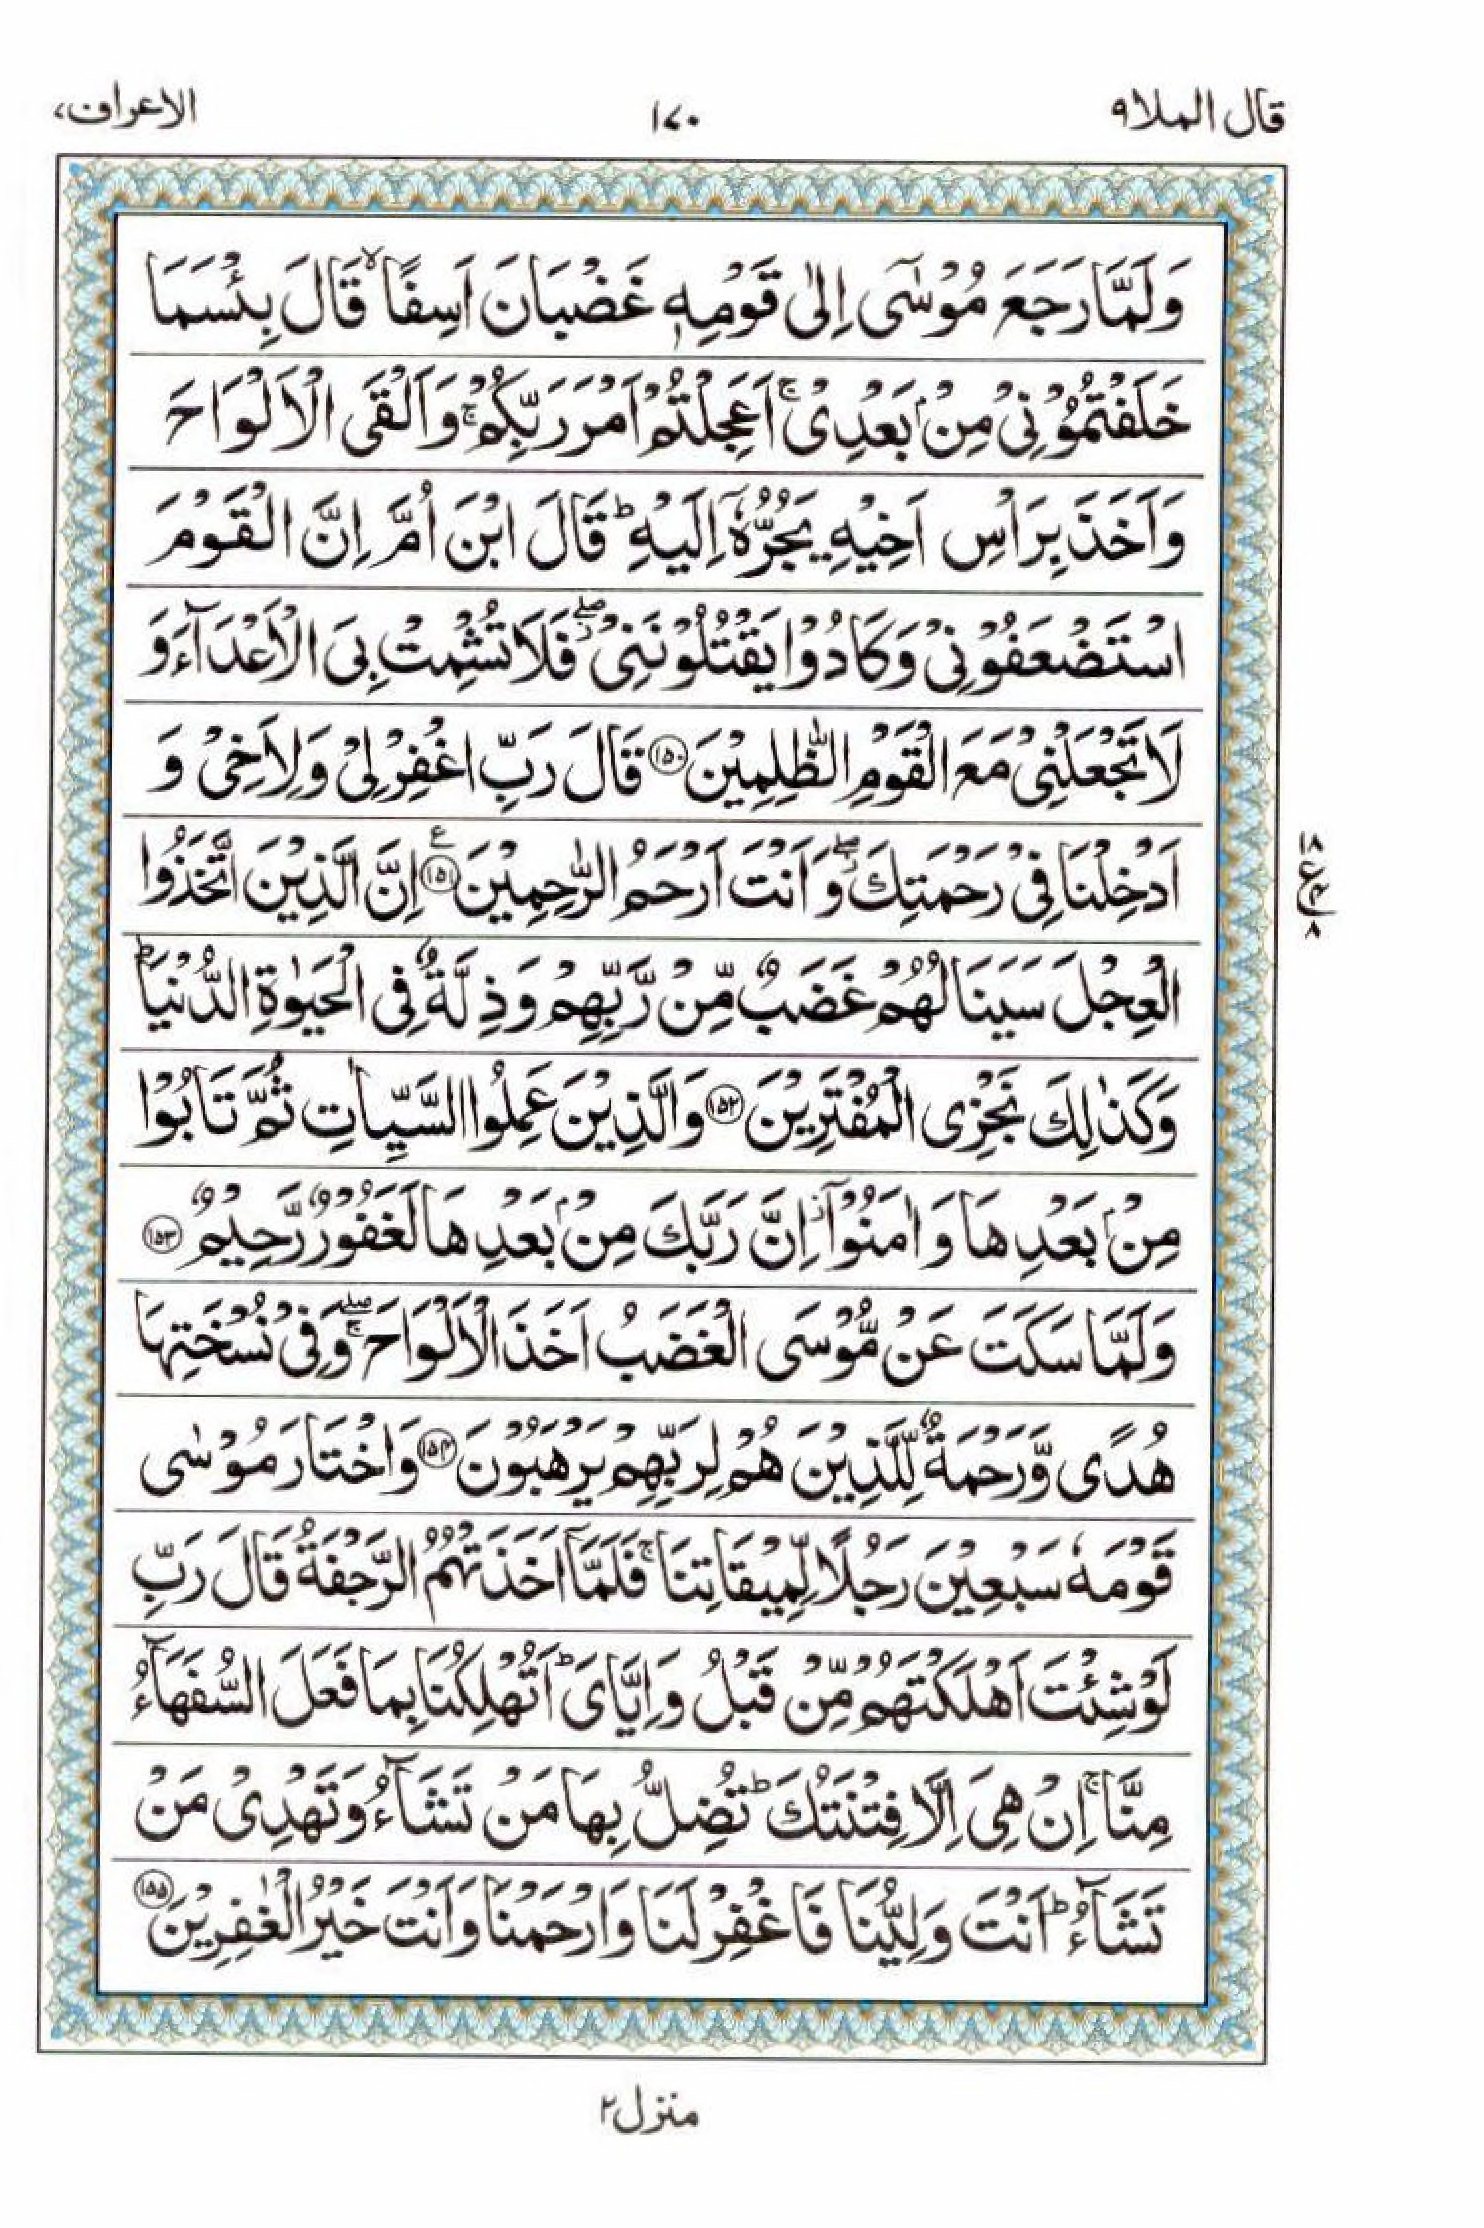 قال الملا ٩
١٧٠
الاعراف ٧
وَلَمَّا رَجَعَ مُوْسٰۤى اِلٰى قَوْمِهٖ غَضْبَانَ اَسِفًا ۙ قَالَ بِئْسَمَا
خَلَفْتُمُوْنِیْ مِنْۢ بَعْدِیْ ۚ اَعَجِلْتُمْ اَمْرَ رَبِّكُمْ ۚ وَاَلْقَى الْاَلْوَاحَ
وَاَخَذَ بِرَاْسِ اَخِیْهِ یَجُرُّهٗۤ اِلَیْهِ ؕ قَالَ ابْنَ اُمَّ اِنَّ الْقَوْمَ
اسْتَضْعَفُوْنِیْ وَكَادُوْا یَقْتُلُوْنَنِیْ ۖ٘ فَلَا تُشْمِتْ بِیَ الْاَعْدَآءَ وَ
لَا تَجْعَلْنِیْ مَعَ الْقَوْمِ الظّٰلِمِیْنَ ۝١٥٠ قَالَ رَبِّ اغْفِرْ لِیْ وَلِاَخِیْ وَ
اَدْخِلْنَا فِیْ رَحْمَتِكَ ۖ٘ وَاَنْتَ اَرْحَمُ الرّٰحِمِیْنَ ۝١٥١ ع اِنَّ الَّذِیْنَ اتَّخَذُوا
١٨
ع
٤
٨
الْعِجْلَ سَیَنَالُهُمْ غَضَبٌ مِّنْ رَّبِّهِمْ وَذِلَّةٌ فِی الْحَیٰوةِ الدُّنْیَا ؕ
وَكَذٰلِكَ نَجْزِی الْمُفْتَرِیْنَ ۝١٥٢ وَالَّذِیْنَ عَمِلُوا السَّیِّاٰتِ ثُمَّ تَابُوْا
مِنْۢ بَعْدِهَا وَاٰمَنُوْۤا ؗ اِنَّ رَبَّكَ مِنْۢ بَعْدِهَا لَغَفُوْرٌ رَّحِیْمٌ ۝١٥٣
وَلَمَّا سَكَتَ عَنْ مُّوْسَى الْغَضَبُ اَخَذَ الْاَلْوَاحَ ۖۚ وَفِیْ نُسْخَتِهَا
هُدًى وَّرَحْمَةٌ لِّلَّذِیْنَ هُمْ لِرَبِّهِمْ یَرْهَبُوْنَ ۝١٥٤ وَاخْتَارَ مُوْسٰى
قَوْمَهٗ سَبْعِیْنَ رَجُلًا لِّمِیْقَاتِنَا ۚ فَلَمَّاۤ اَخَذَتْهُمُ الرَّجْفَةُ قَالَ رَبِّ
لَوْ شِئْتَ اَهْلَكْتَهُمْ مِّنْ قَبْلُ وَاِیَّایَ ؕ اَتُهْلِكُنَا بِمَا فَعَلَ السُّفَهَآءُ
مِنَّا ۚ اِنْ هِیَ اِلَّا فِتْنَتُكَ ؕ تُضِلُّ بِهَا مَنْ تَشَآءُ وَتَهْدِیْ مَنْ
تَشَآءُ ؕ اَنْتَ وَلِیُّنَا فَاغْفِرْ لَنَا وَارْحَمْنَا وَاَنْتَ خَیْرُ الْغٰفِرِیْنَ ۝١٥٥
منزل ٢